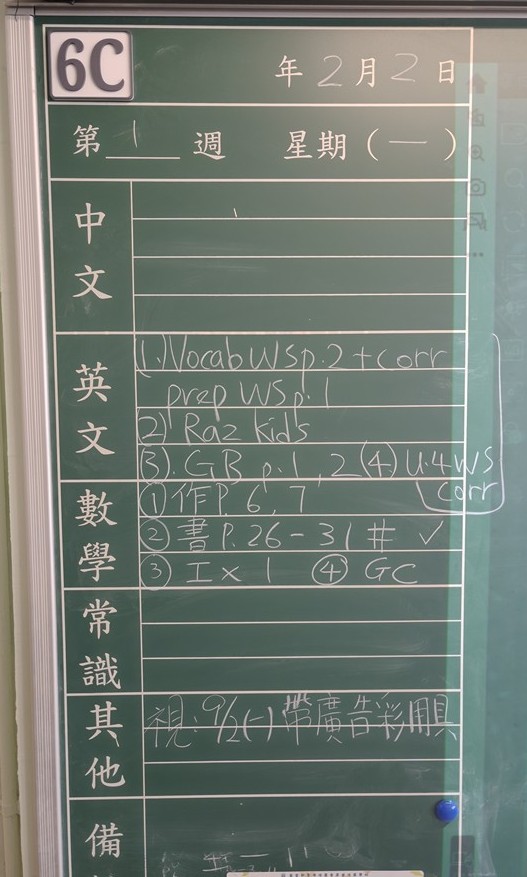 6C
年 2 月 2 日
第 1 週 星期 ( 一 )
中文
英文
(1.) Vocab WS p.2 + corr
prep WS p.1
(2) Raz kids
(3). GB p.1, 2 (4) U.4 WS
corr
數學
① 作 P. 6, 7
② 書 P. 26 - 31 # ✓
③ I x 1 ④ GC
常識
其他
視: 9/2 (一) 帶廣告彩用具
備